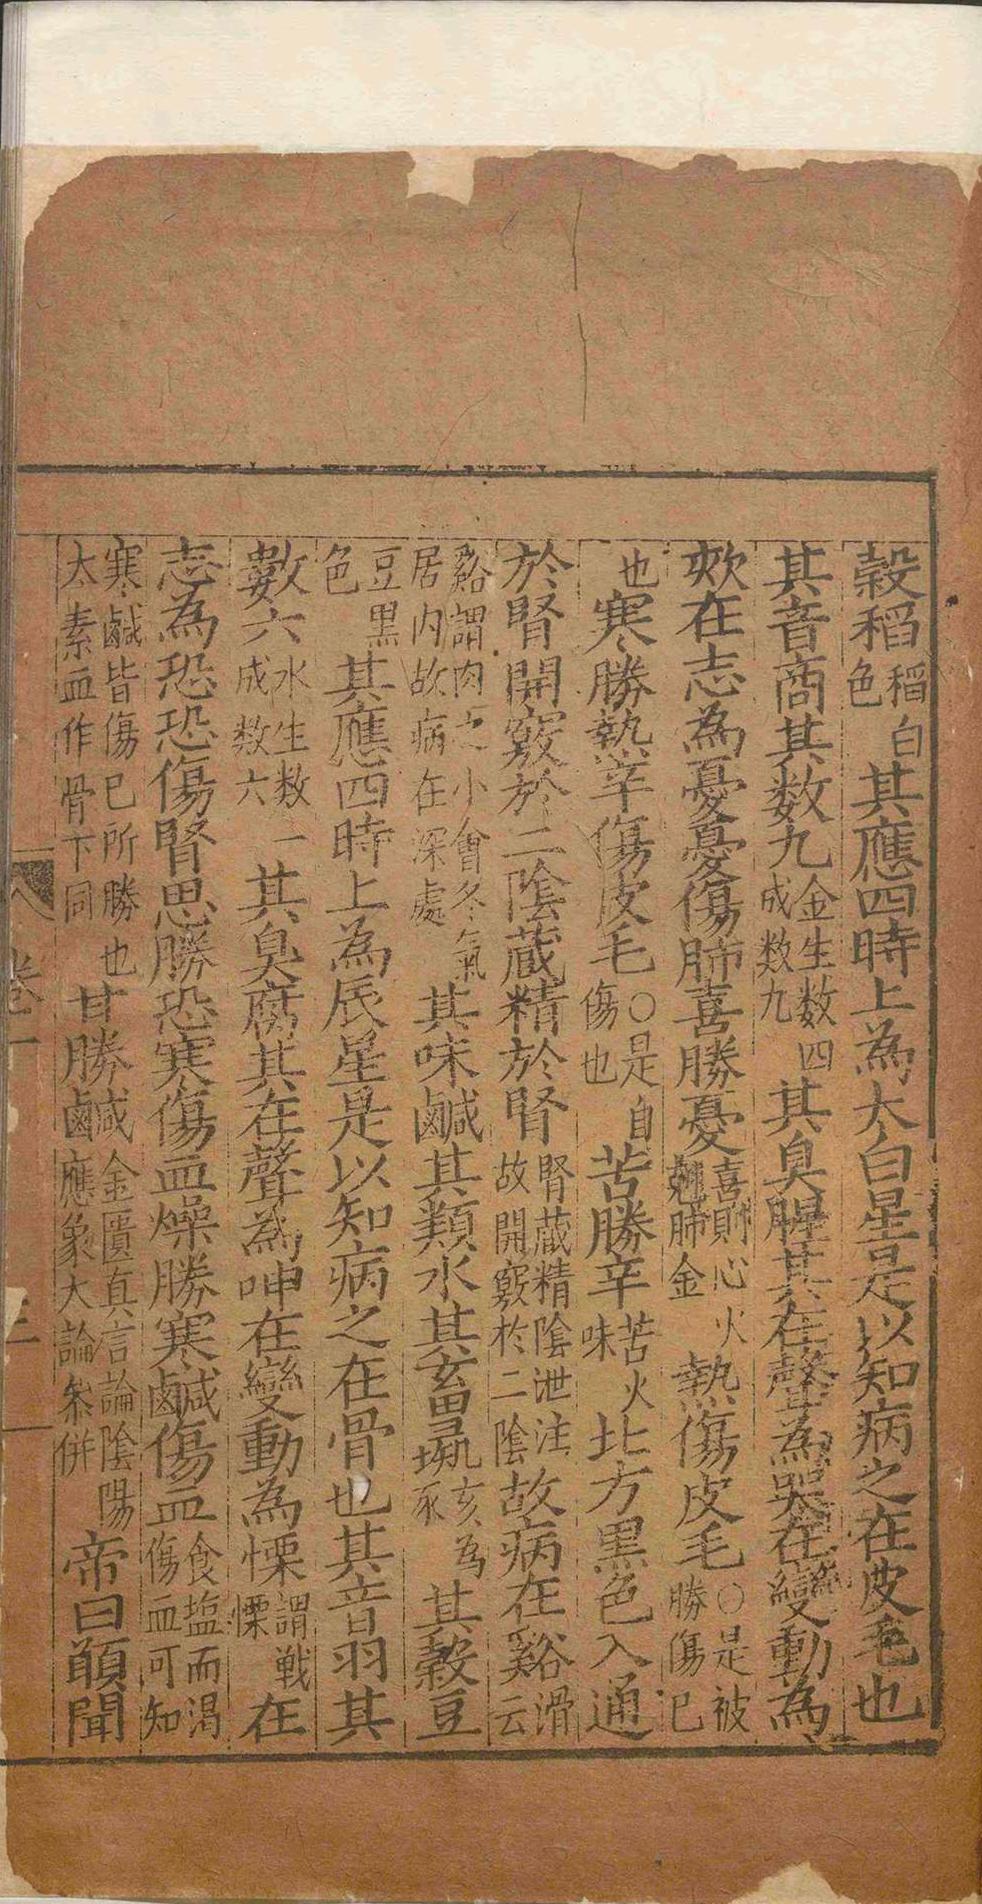 穀稻稻白色其應四時上為太白星是以知病之在皮毛也
其音商其数九金生数四成数九其臭腥其在聲為哭在變動為
欬在志為憂憂傷肺喜勝憂喜則心火尅肺金熱傷皮毛○是被勝傷已
也寒勝熱辛傷皮毛○是自傷也苦勝辛苦火味北方黑色入通
於腎開竅於二陰蔵精於腎腎蔵精陰泄注故開竅於二陰故病在谿滑云
谿謂肉之小會冬氣居内故病在深處其味鹹其類水其畜彘亥為豕其穀豆
豆黒色其應四時上為辰星是以知病之在骨也其音羽其
數六水生数一成数六其臭腐其在聲為呻在變動為慄謂戦慄在
志為恐恐傷腎思勝恐寒傷血燥勝寒鹹傷血食塩而渇傷血可知
寒鹹皆傷已所勝也太素血作骨下同甘勝鹹金匱真言論陰陽應象大論叅併帝曰頋聞
卷一
三